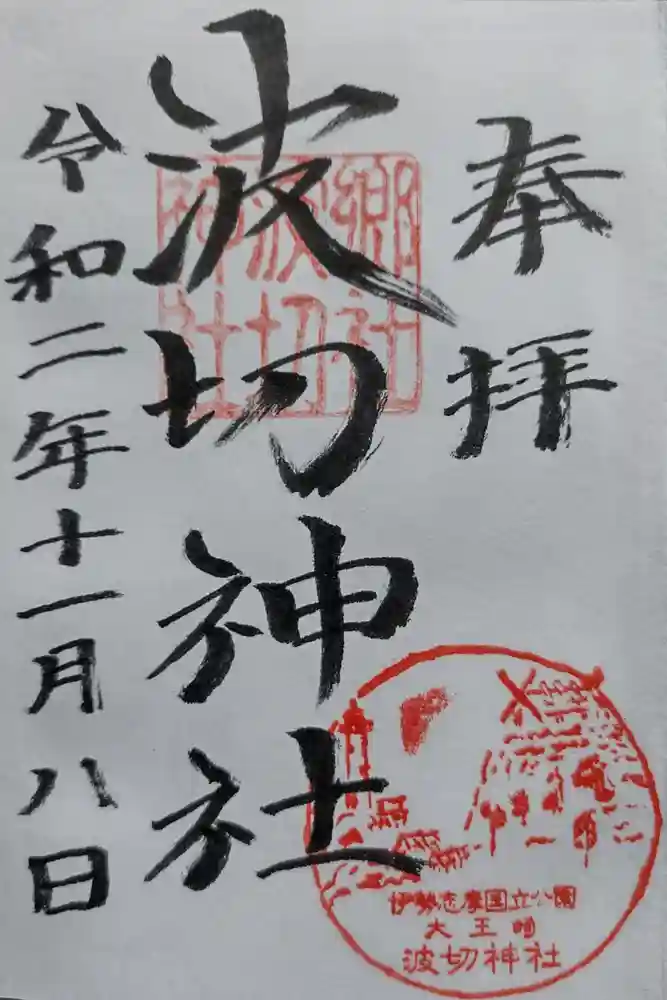 奉拝
郷社
波切
神社
波切神社
令和二年十一月八日
伊勢志摩国立公園
大王崎
波切神社